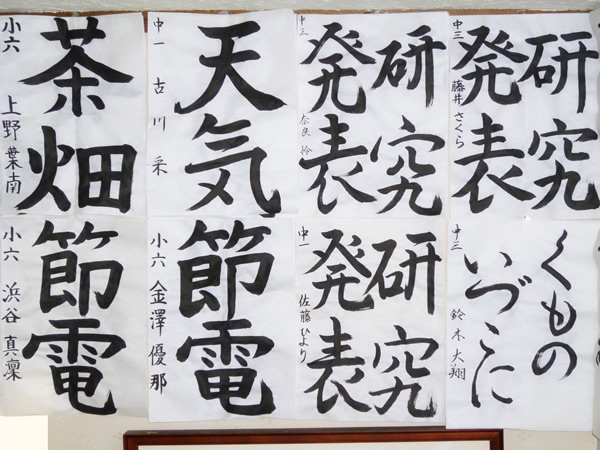 研究
発表
中三 藤井さくら
研究
発表
中三 奈良 怜
天気
中一 古川 采
茶畑
小六 上野葉南
くもの
いづこに
中三 鈴木大翔
研究
発表
中一 佐藤ひより
節電
小六 金澤優那
節電
小六 浜谷真凜